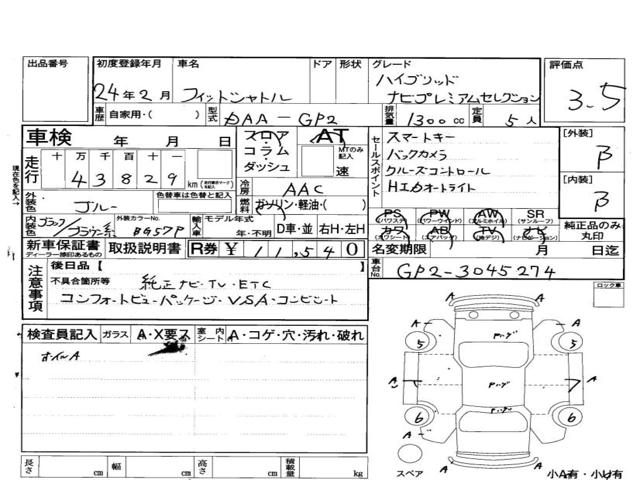 出品番号 初度登録年月 車名 ドア 形状 グレード 評価点
24年2月 フィットシャトル ハイブリッド
ナビプレミアムセレクション 3.5
車歴 自家用・( ) 型式 DAA-GP2 排気量 1300cc 定員 5人
車検 年 月 日 フロア AT セールスポイント スマートキー [外装]
コラム MTのみ記入 バックカメラ B
走行 十 万 千 百 十 一 ダッシュ 速 クルーズコントロール
43829 km 冷房 AAC HIDオートライト [内装]
現在色を記入→ 外装色 ブルー 色替車は色替色 燃料 ガソリン・軽油・( ) B
内装色 ブラック/ブラウン系 外装カラーNo. BG57P 輸入車 モデル年式 年・不明 D車・並 右H・左H
PS (パワステ) PW (パワーウインド) AW (アルミホイル) SR (サンルーフ) 純正品のみ丸印
カワ (カワシート) AB (エアバック) TV (地デジ) ナビ (ナビゲーション)
新車保証書 ディーラー捺印あるもの 取扱説明書 R券 ¥11,540 名変期限 月 日迄
注意事項 後日品【 】 車台No. GP2-3045274
不具合箇所等 純正ナビ・TV・ETC
コンフォートビューパッケージ・VSA・コンビシート ロック車
検査員記入 ガラス A・X要ス 室内シート A・コゲ・穴・汚れ・破れ
ホイルA
A A
5 5
A A
6 6
A A
長さ cm 幅 cm 高さ cm 積載量 kg スペア 小A有・小U有